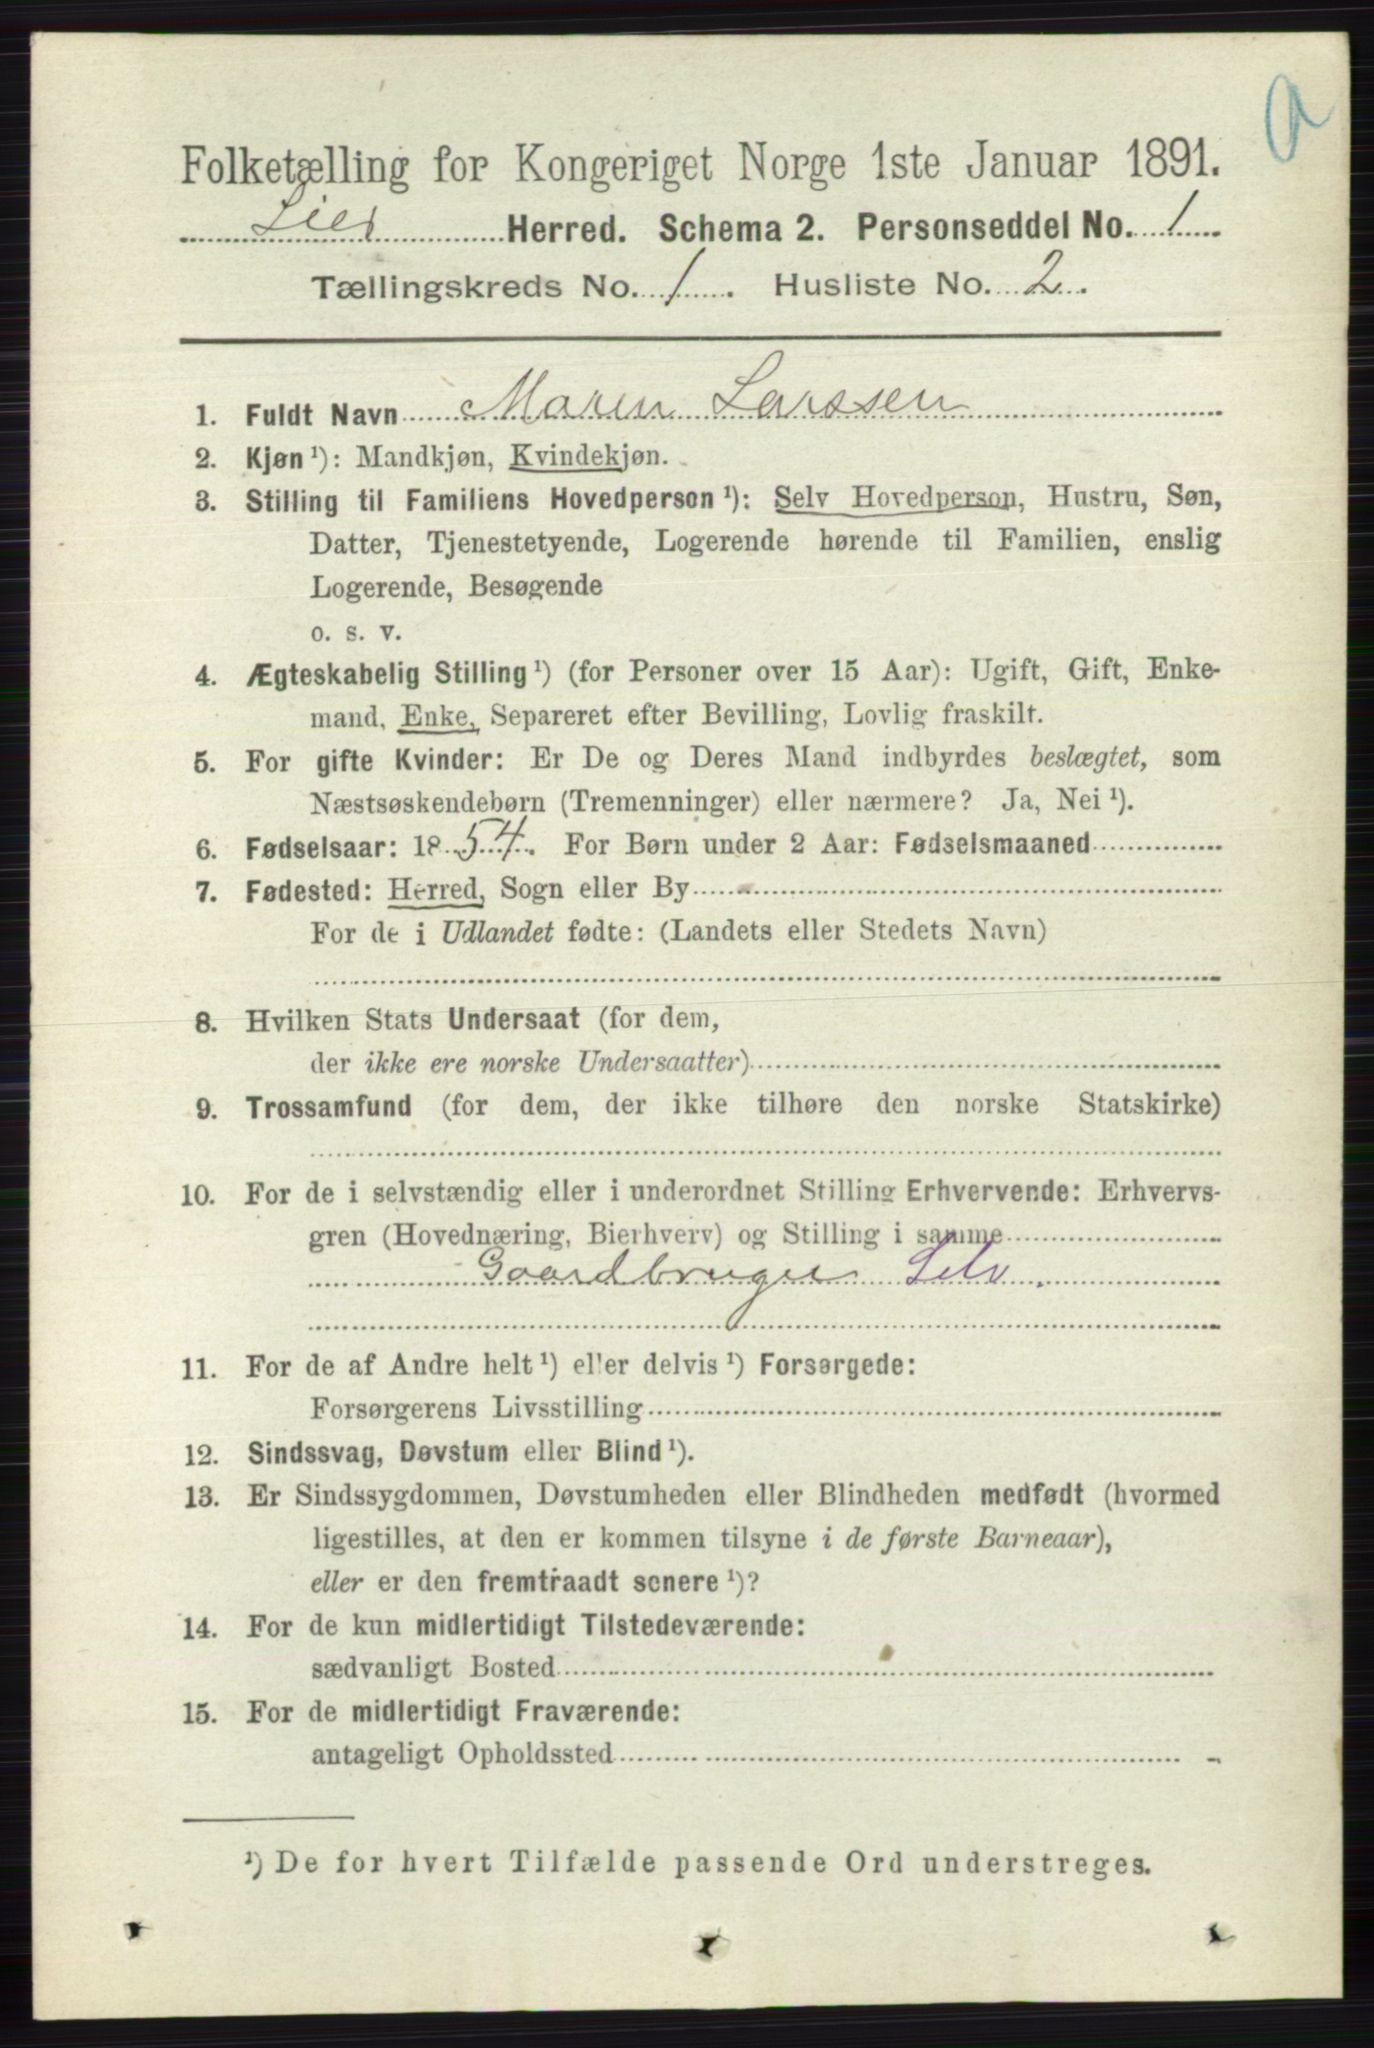 a
Folketælling for Kongeriget Norge 1ste Januar 1891.
Lier Herred. Schema 2. Personseddel No. 1
Tællingskreds No. 1. Husliste No. 2.
1. Fuldt Navn Maren Larssen
2. Kjøn ¹): Mandkjøn, Kvindekjøn.
3. Stilling til Familiens Hovedperson ¹): Selv Hovedperson, Hustru, Søn,
Datter, Tjenestetyende, Logerende hørende til Familien, enslig
Logerende, Besøgende
o. s. v.
4. Ægteskabelig Stilling ¹) (for Personer over 15 Aar): Ugift, Gift, Enke-
mand, Enke, Separeret efter Bevilling, Lovlig fraskilt.
5. For gifte Kvinder: Er De og Deres Mand indbyrdes beslægtet, som
Næstsøskendebørn (Tremenninger) eller nærmere? Ja, Nei ¹).
6. Fødselsaar: 1854. For Børn under 2 Aar: Fødselsmaaned
7. Fødested: Herred, Sogn eller By
For de i Udlandet fødte: (Landets eller Stedets Navn)
8. Hvilken Stats Undersaat (for dem,
der ikke ere norske Undersaatter)
9. Trossamfund (for dem, der ikke tilhøre den norske Statskirke)
10. For de i selvstændig eller i underordnet Stilling Erhvervende: Erhvervs-
gren (Hovednæring, Bierhverv) og Stilling i samme
Gaardbruger Selv.
11. For de af Andre helt ¹) eller delvis ¹) Forsørgede:
Forsørgerens Livsstilling
12. Sindssvag, Døvstum eller Blind ¹).
13. Er Sindssygdommen, Døvstumheden eller Blindheden medfødt (hvormed
ligestilles, at den er kommen tilsyne i de første Barneaar),
eller er den fremtraadt senere ¹)?
14. For de kun midlertidigt Tilstedeværende:
sædvanligt Bosted
15. For de midlertidigt Fraværende:
antageligt Opholdssted
¹) De for hvert Tilfælde passende Ord understreges.